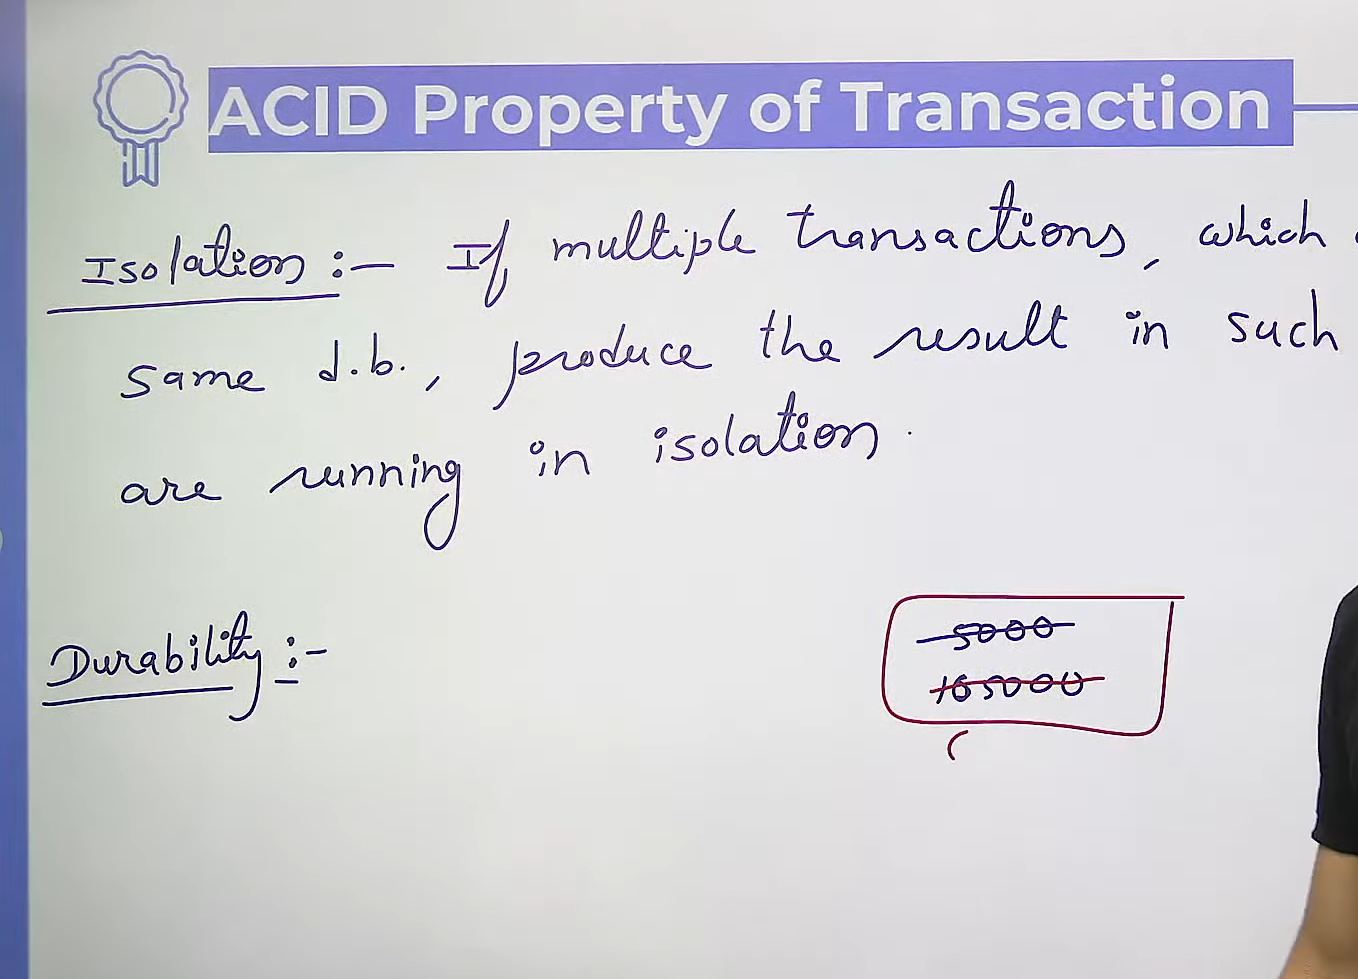 ACID Property of Transaction
Isolation :- If multiple transactions, which
same d.b., produce the result in such
are running in isolation.
Durability :-
5000
105000